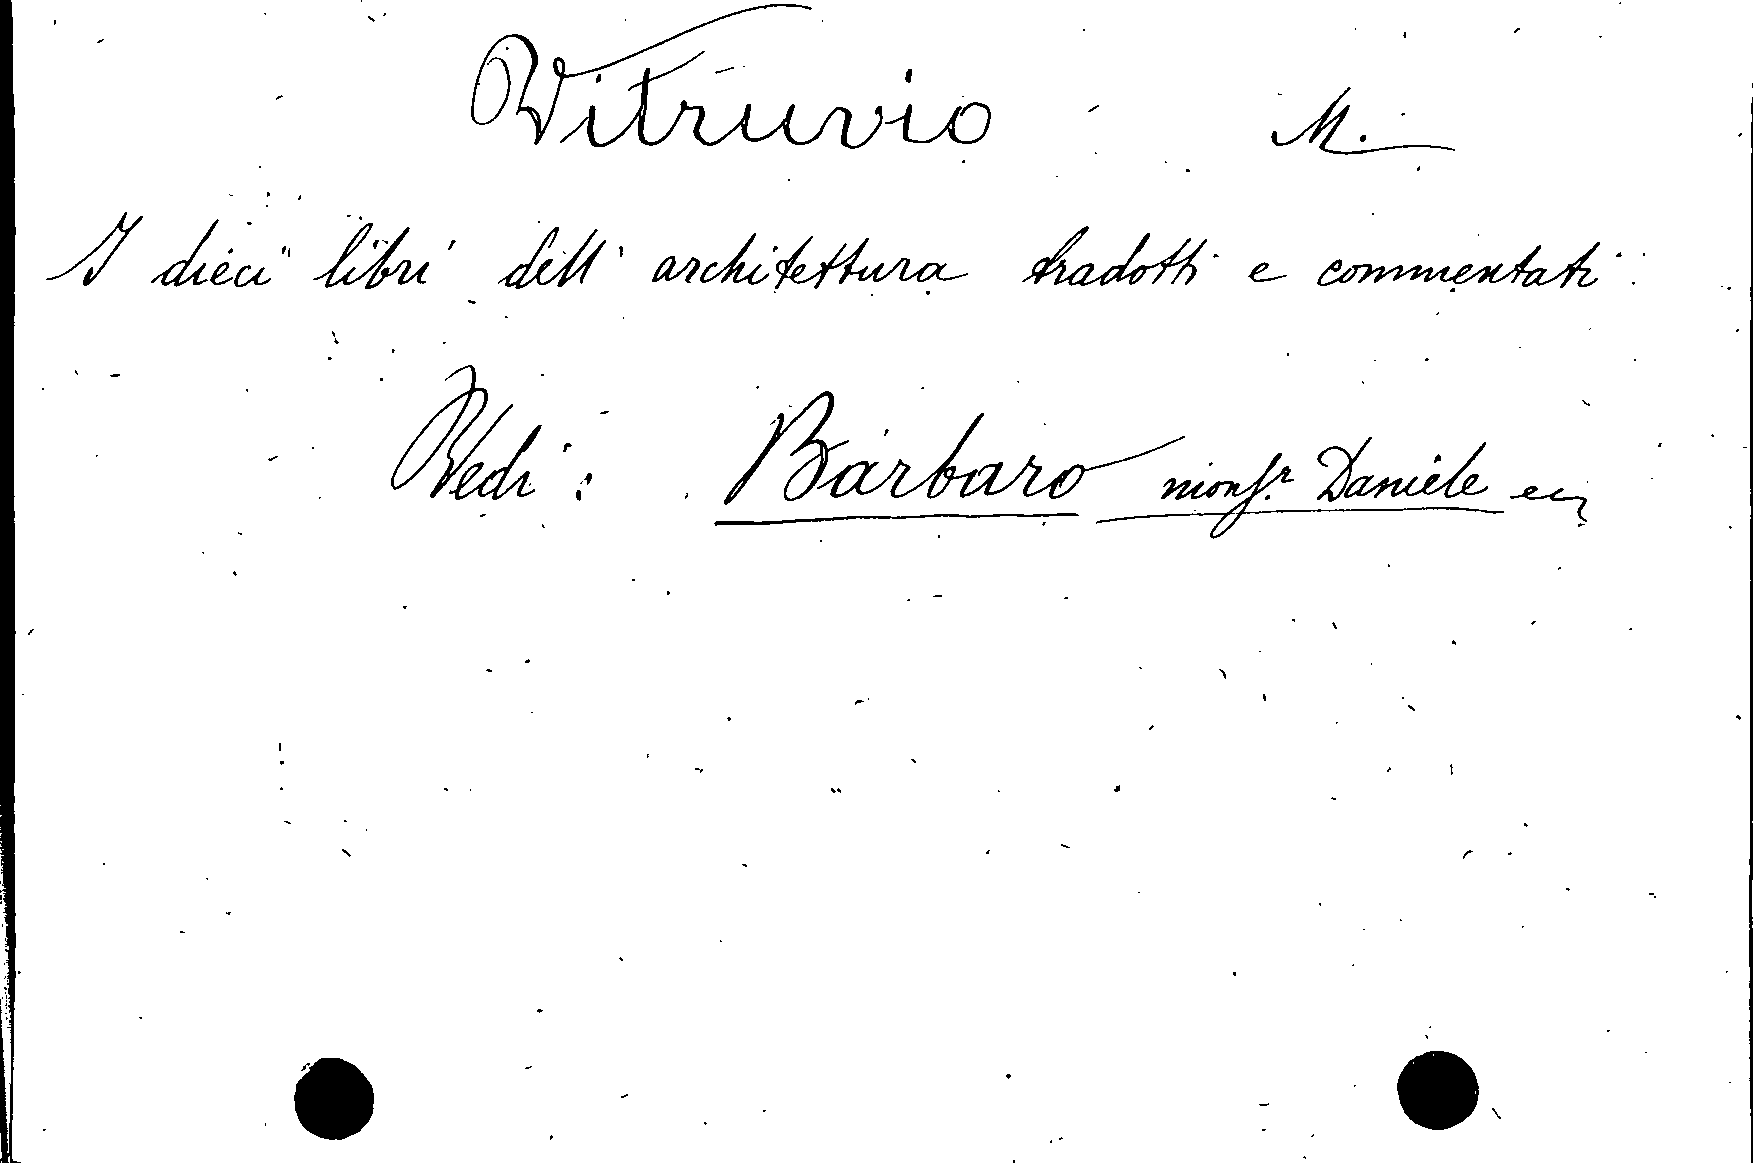 Vitruvio M.
I dieci libri dell' architettura tradotti e commentati
Vedi: Barbaro monsr. Daniele